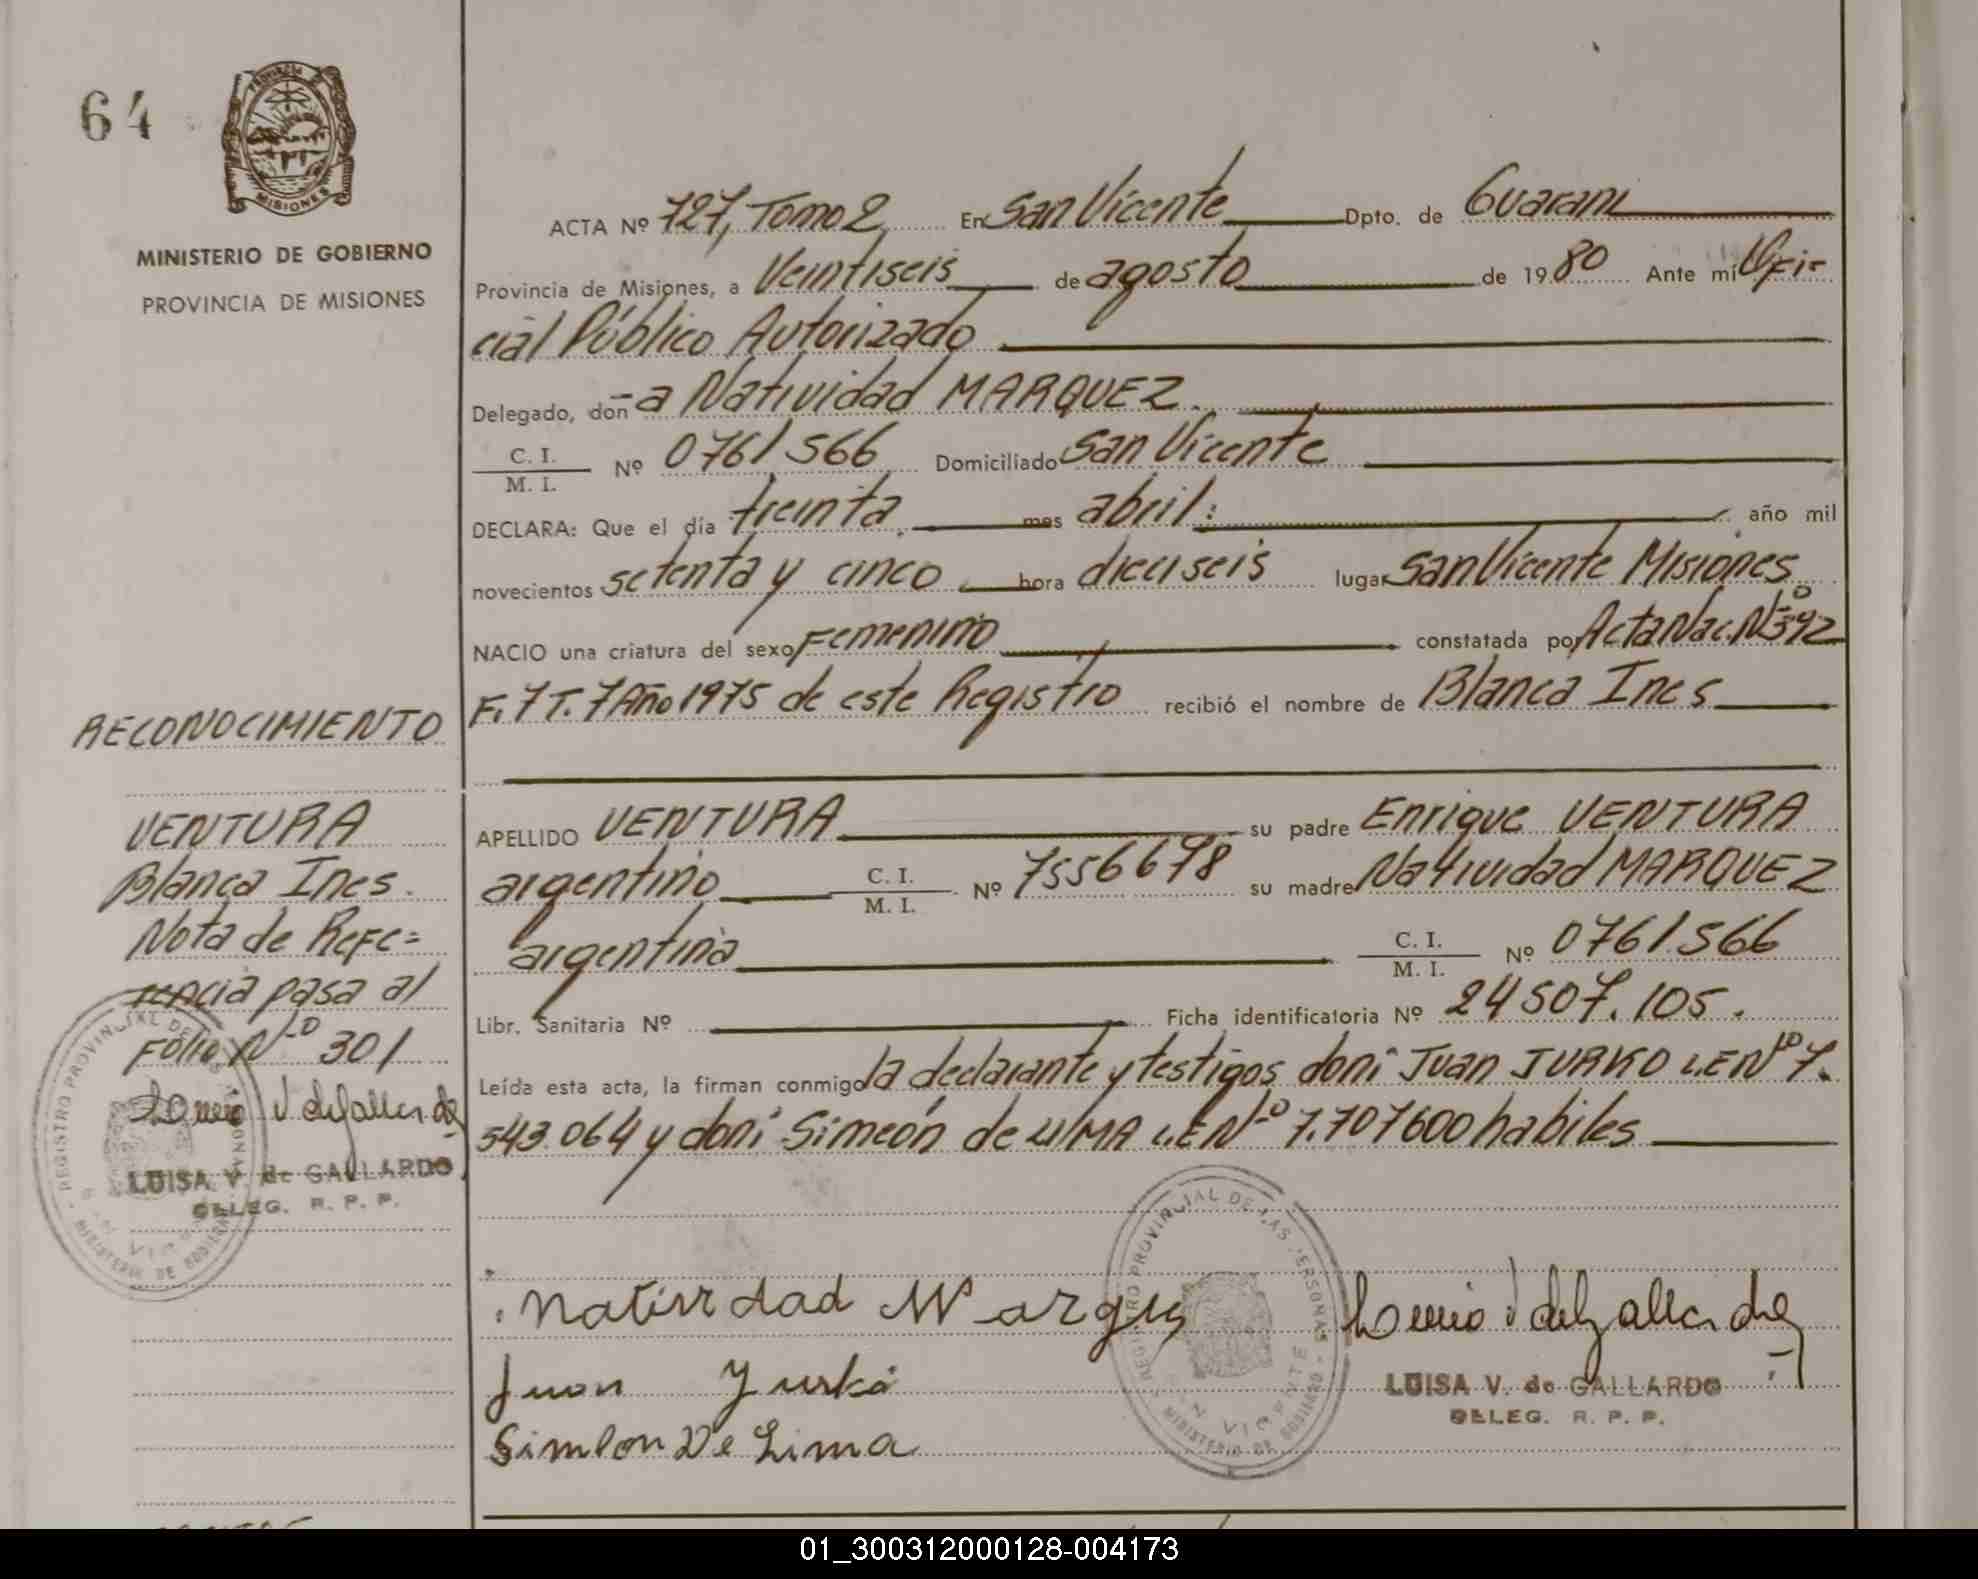 64
PROVINCIA DE
MISIONES
MINISTERIO DE GOBIERNO
PROVINCIA DE MISIONES
ACTA Nº 727, Tomo 2 En San Vicente Dpto. de Guarani
Provincia de Misiones, a Veintiseis de agosto de 1980 Ante mí Ofi-
cial Público Autorizado
Delegado, don-a Natividad MARQUEZ.
C. I.
M. I. Nº 0761566 Domiciliado San Vicente
DECLARA: Que el día treinta mes abril: año mil
novecientos setenta y cinco hora dieciseis lugar San Vicente Misiones
NACIO una criatura del sexo Femenino constatada por Acta Nac. Nº 392
F. 7 T. 7 Año 1975 de este Registro recibió el nombre de Blanca Ines
RECONOCIMIENTO
VENTURA
Blanca Ines.
Nota de Refe=
rencia pasa al
Folio Nº 301
LUISA V. de GALLARDO
DELEG. R. P. P.
APELLIDO VENTURA su padre Enrique VENTURA
argentino C. I.
M. I. Nº 7556698 su madre Natividad MARQUEZ
argentina C. I.
M. I. Nº 0761566
Libr. Sanitaria Nº Ficha identificatoria Nº 24507.105.
Leída esta acta, la firman conmigo la declarante y testigos don: Juan JURKO L.E Nº 7.
543.064 y don: Simeón de LIMA L.E Nº 7.707600 habiles
Natividad Marquez
Juan Yurko
Simeon De Lima
REGISTRO PROVINCIAL DE LAS PERSONAS
SAN VICENTE
MINISTERIO DE GOBIERNO
LUISA V. de GALLARDO
DELEG. R. P. P.
01_300312000128-004173